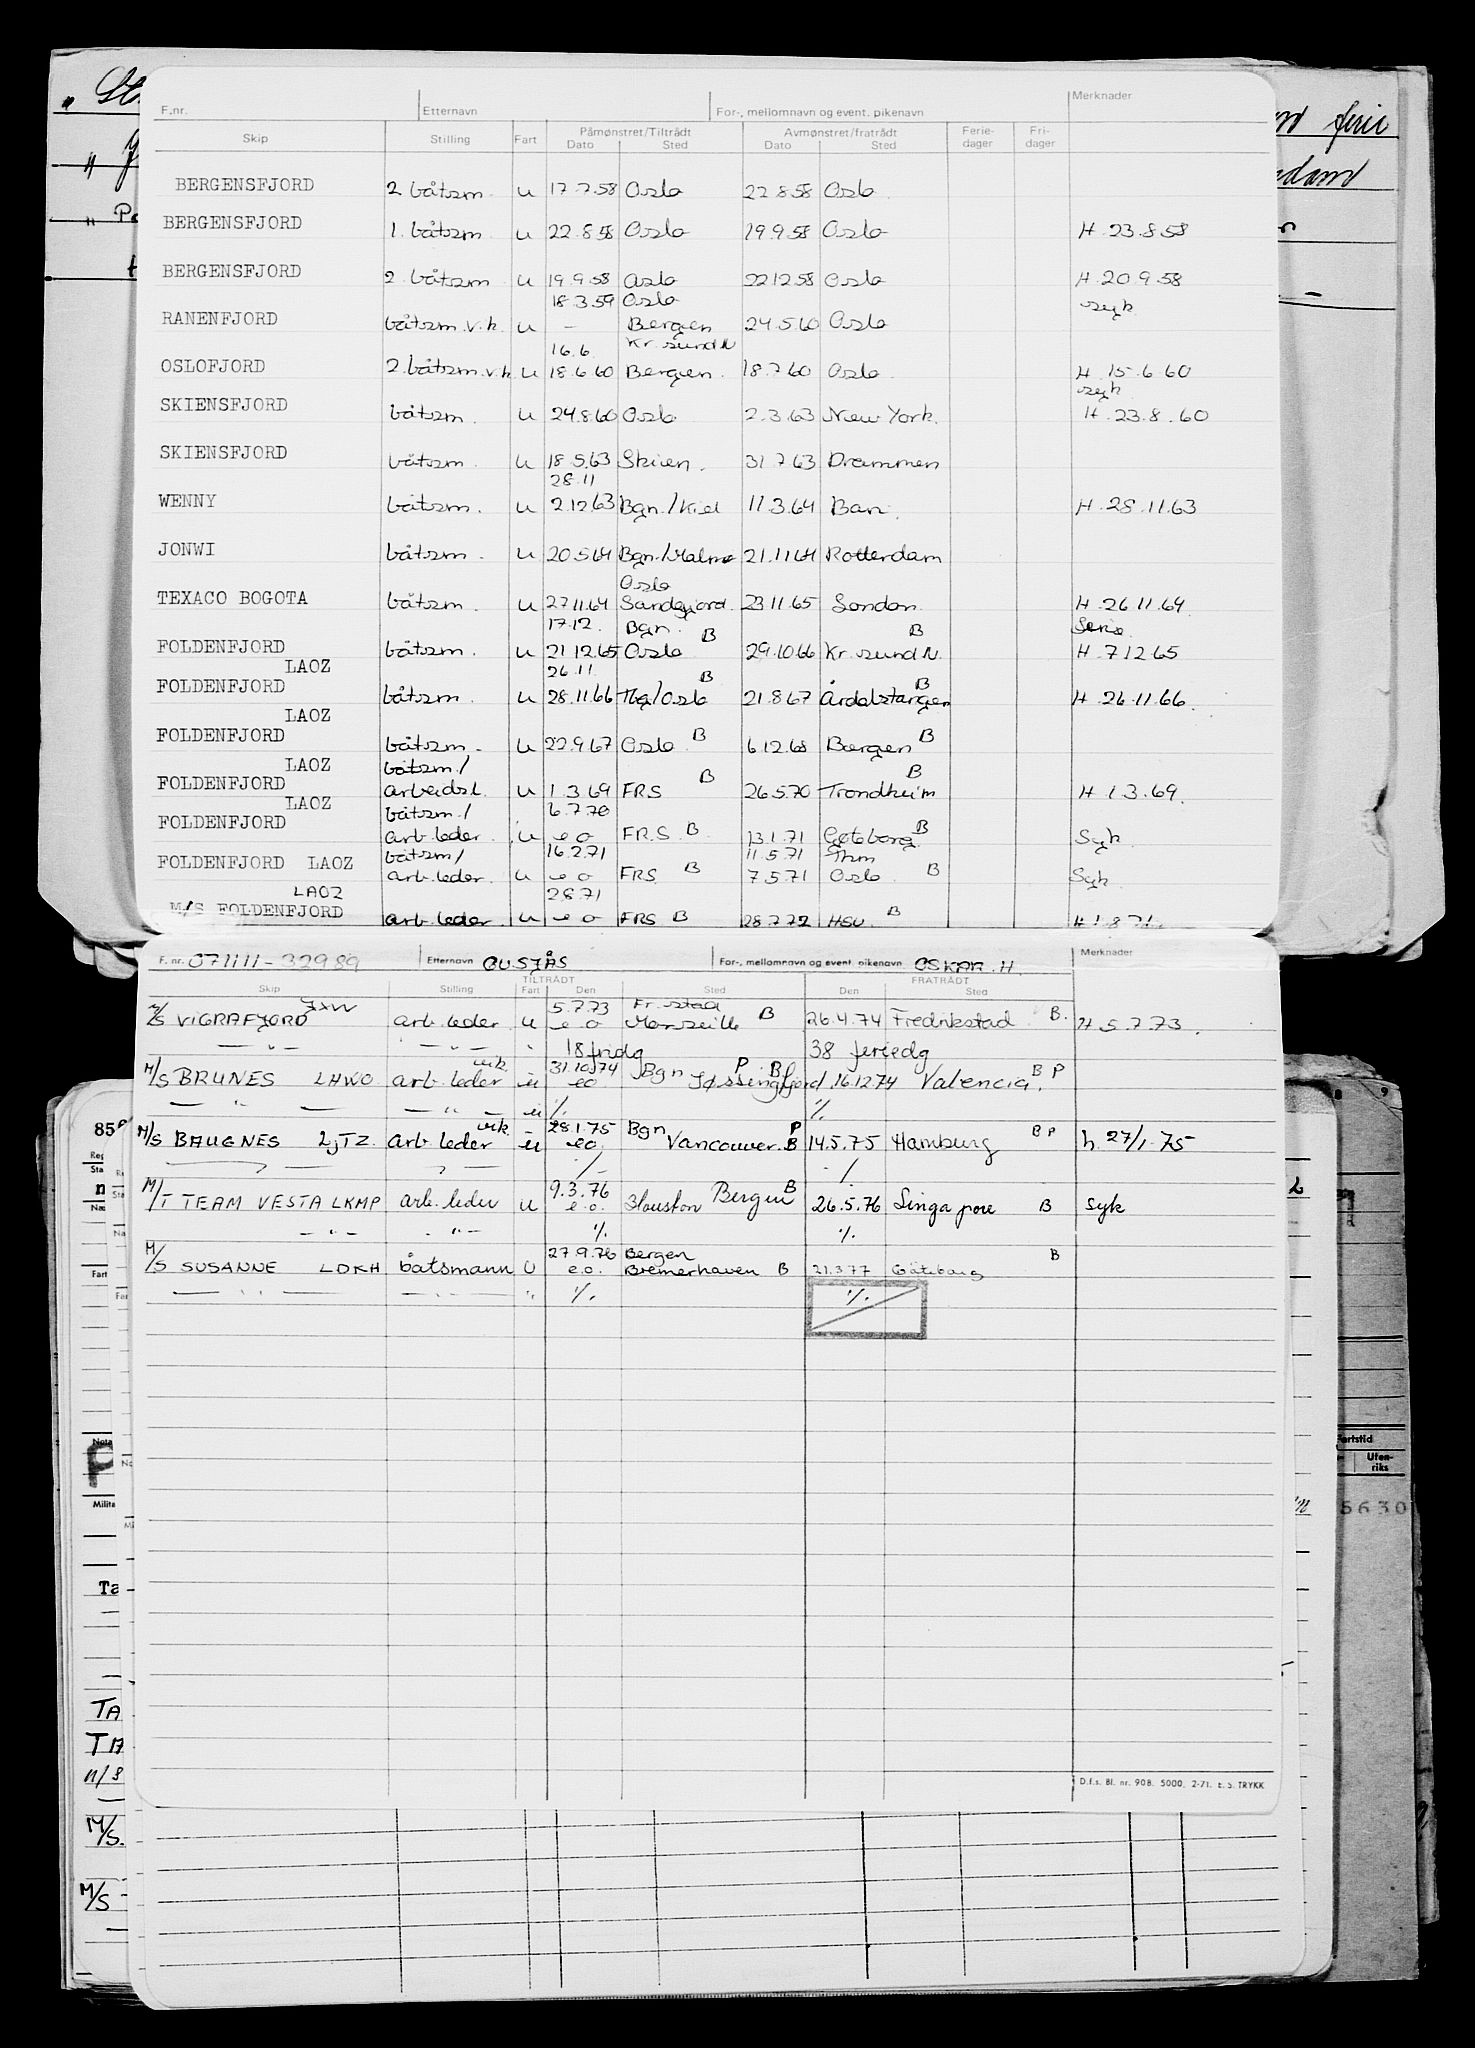 F.nr. Etternavn For-, mellomnavn og event. pikenavn Merknader
Skip Stilling Fart Påmønstret/Tiltrådt Avmønstret/fratrådt Ferie- Fri-
Dato Sted Dato Sted dager dager
BERGENSFJORD 2 båtsm. u 17.7.58 Oslo 22.8.58 Oslo.
BERGENSFJORD 1. båtsm. u 22.8.58 Oslo 19.9.58 Oslo H. 23.8.58
BERGENSFJORD 2. båtsm u 19.9.58 Oslo 22.12.58 Oslo H. 20.9.58
18.3.59 Oslo syk
RANENFJORD båtsm.v.k. u - Bergen 24.5.60 Oslo
16.6. Kr.sund N
OSLOFJORD 2.båtsm.v.k u 18.6.60 Bergen. 18.7.60 Oslo. H. 15.6.60
syk.
SKIENSFJORD båtsm. u 24.8.60 Oslo 2.3.63 New York. H. 23.8.60
SKIENSFJORD båtsm. u 18.5.63 Skien. 31.7.63 Drammen
28.11
WENNY båtsm. u 2.12.63 Bgn./Kiel 11.3.64 Ban. H. 28.11.63
JONWI båtsm. u 20.5.64 Bgn./Malmø 21.11.64 Rotterdam
Oslo
TEXACO BOGOTA båtsm. u 27.11.64 Sandefjord. 23.11.65 London. H. 26.11.64.
17.12. Bgn. B B
FOLDENFJORD båtsm. u 21.12.65 Oslo 29.10.66 Kr.sund N. H. 7.12.65
LAOZ 26.11. B B
FOLDENFJORD båtsm. u 28.11.66 Tbg/Oslo 21.8.67 Årdalstangen H. 26.11.66.
LAOZ
FOLDENFJORD båtsm. u 22.9.67 Oslo B 6.12.68 Bergen B
LAOZ båtsm./ B B
FOLDENFJORD arbeidsl. u 1.3.69 FRS 26.5.70 Trondheim H. 1.3.69.
LAOZ båtsm./ 6.7.70
FOLDENFJORD arb.leder. u e o FR.S. B 13.1.71 Gøteborg. B Syk.
båtsm/ 16.2.71 11.5.71 Thm
FOLDENFJORD LAOZ arb.leder. u e o FRS. B 7.5.71 Oslo. B Syk.
LAOZ 2.8.71
M/S FOLDENFJORD arb.leder. u e o FRS B 28.7.72 HSU. B H 1.8.71.
F. nr. 071111-32989 Etternavn GUSJÅS For-, mellomnavn og event. pikenavn OSKAR. H. Merknader
TILTRÅDT FRATRÅDT
Skip Stilling Fart Den Sted Den Sted
JXW 5.7.73 Fr.stad
M/S VIGRAFJORD arb.leder u e o Marseille B 26.4.74 Fredrikstad B. H 5.7.73.
— " — — " — " 18 fridg 38 feriedg
vik. 31.10.74 Bgn P B B P
M/S BRUNES LHWO arb.leder u eo Jøssingfjord 16.12.74 Valencia.
— " — — " — u % %
vik. 28.1.75 Bgn P B P
M/S BAUGNES LJTZ. arb.leder u eo Vancouver. B 14.5.75 Hamburg h. 27/1-75
— " — — " — % %
9.3.76 Bergen B
M/T TEAM VESTA LKMP arb.leder u e.o. Houston 26.5.76 Singapore B syk
— " — — " — % %
27.9.76 Bergen B
M/S SUSANNE LDKH båtsmann U e.o. Bremerhaven B 21.3.77 Göteborg
— " — — " — " % %
D.f.s. Bl. nr. 908. 5000. 2-71. E. S. TRYKK
ferie
Fartstid
Uten-
riks
5630